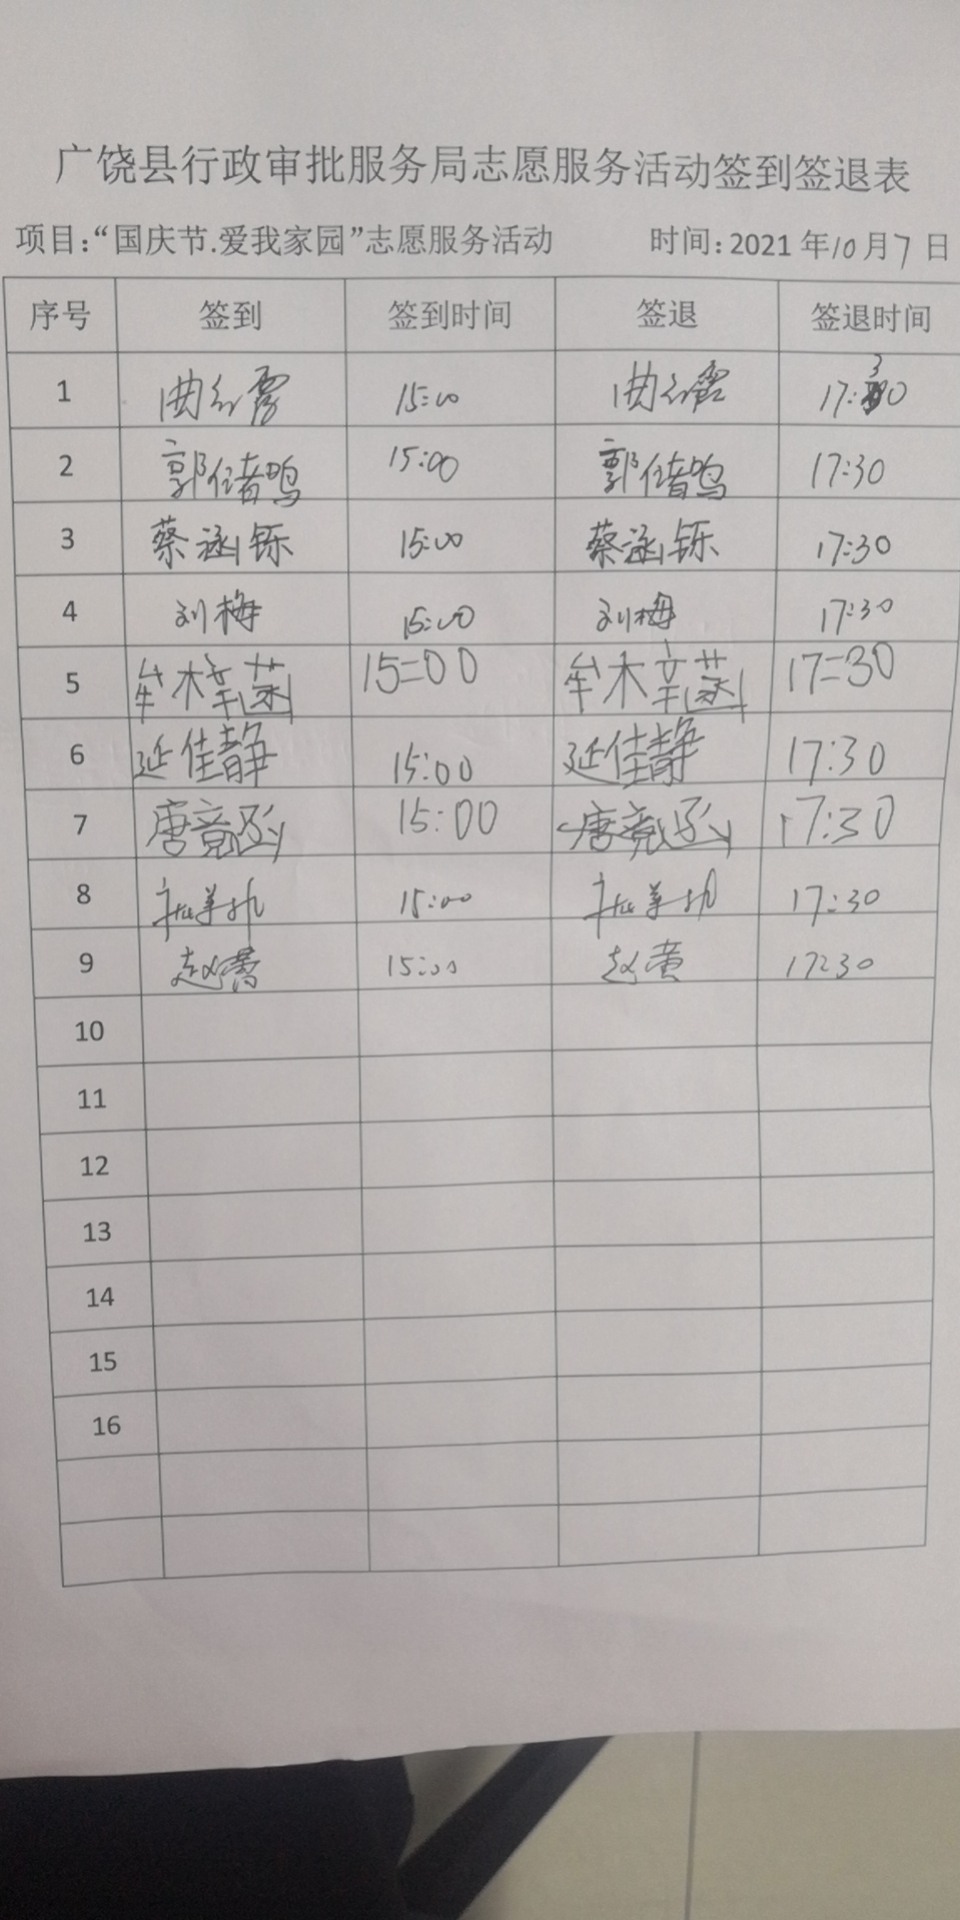 广饶县行政审批服务局志愿服务活动签到签退表
项目:“国庆节.爱我家园”志愿服务活动 时间:2021年10月7日
序号 签到 签到时间 签退 签退时间
1 曲红霞 15:00 曲红霞 17:30
2 郭倍鸣 15:00 郭倍鸣 17:30
3 蔡涵铄 15:00 蔡涵铄 17:30
4 刘梅 15:00 刘梅 17:30
5 牟木辛菡 15:00 牟木辛菡 17:30
6 延佳静 15:00 延佳静 17:30
7 唐竟函 15:00 唐竟函 17:30
8 15:00 17:30
9 赵 15:00 赵 17:30
10
11
12
13
14
15
16